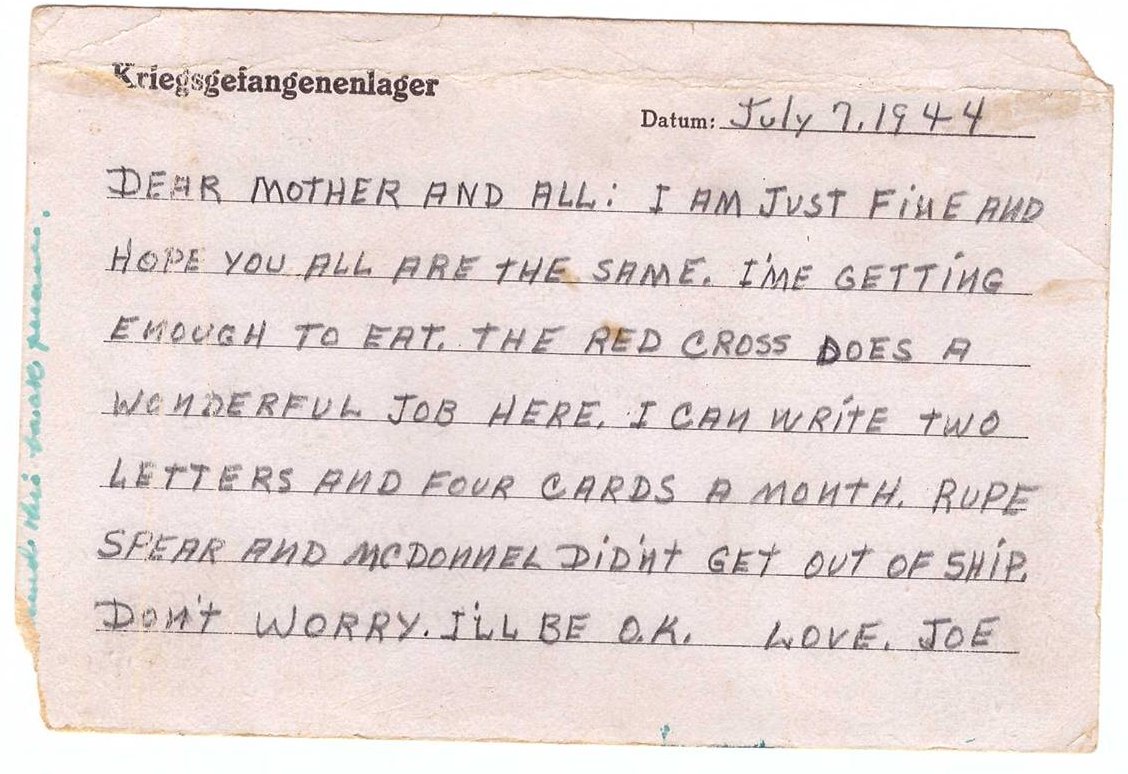 Kriegsgefangenenlager
Datum: July 7, 1944
DEAR MOTHER AND ALL: I AM JUST FINE AND
HOPE YOU ALL ARE THE SAME. I'ME GETTING
ENOUGH TO EAT. THE RED CROSS DOES A
WONDERFUL JOB HERE. I CAN WRITE TWO
LETTERS AND FOUR CARDS A MONTH. RUPE
SPEAR AND MCDONNEL DID'NT GET OUT OF SHIP.
DON'T WORRY. I'LL BE O.K. LOVE. JOE
send this back please.